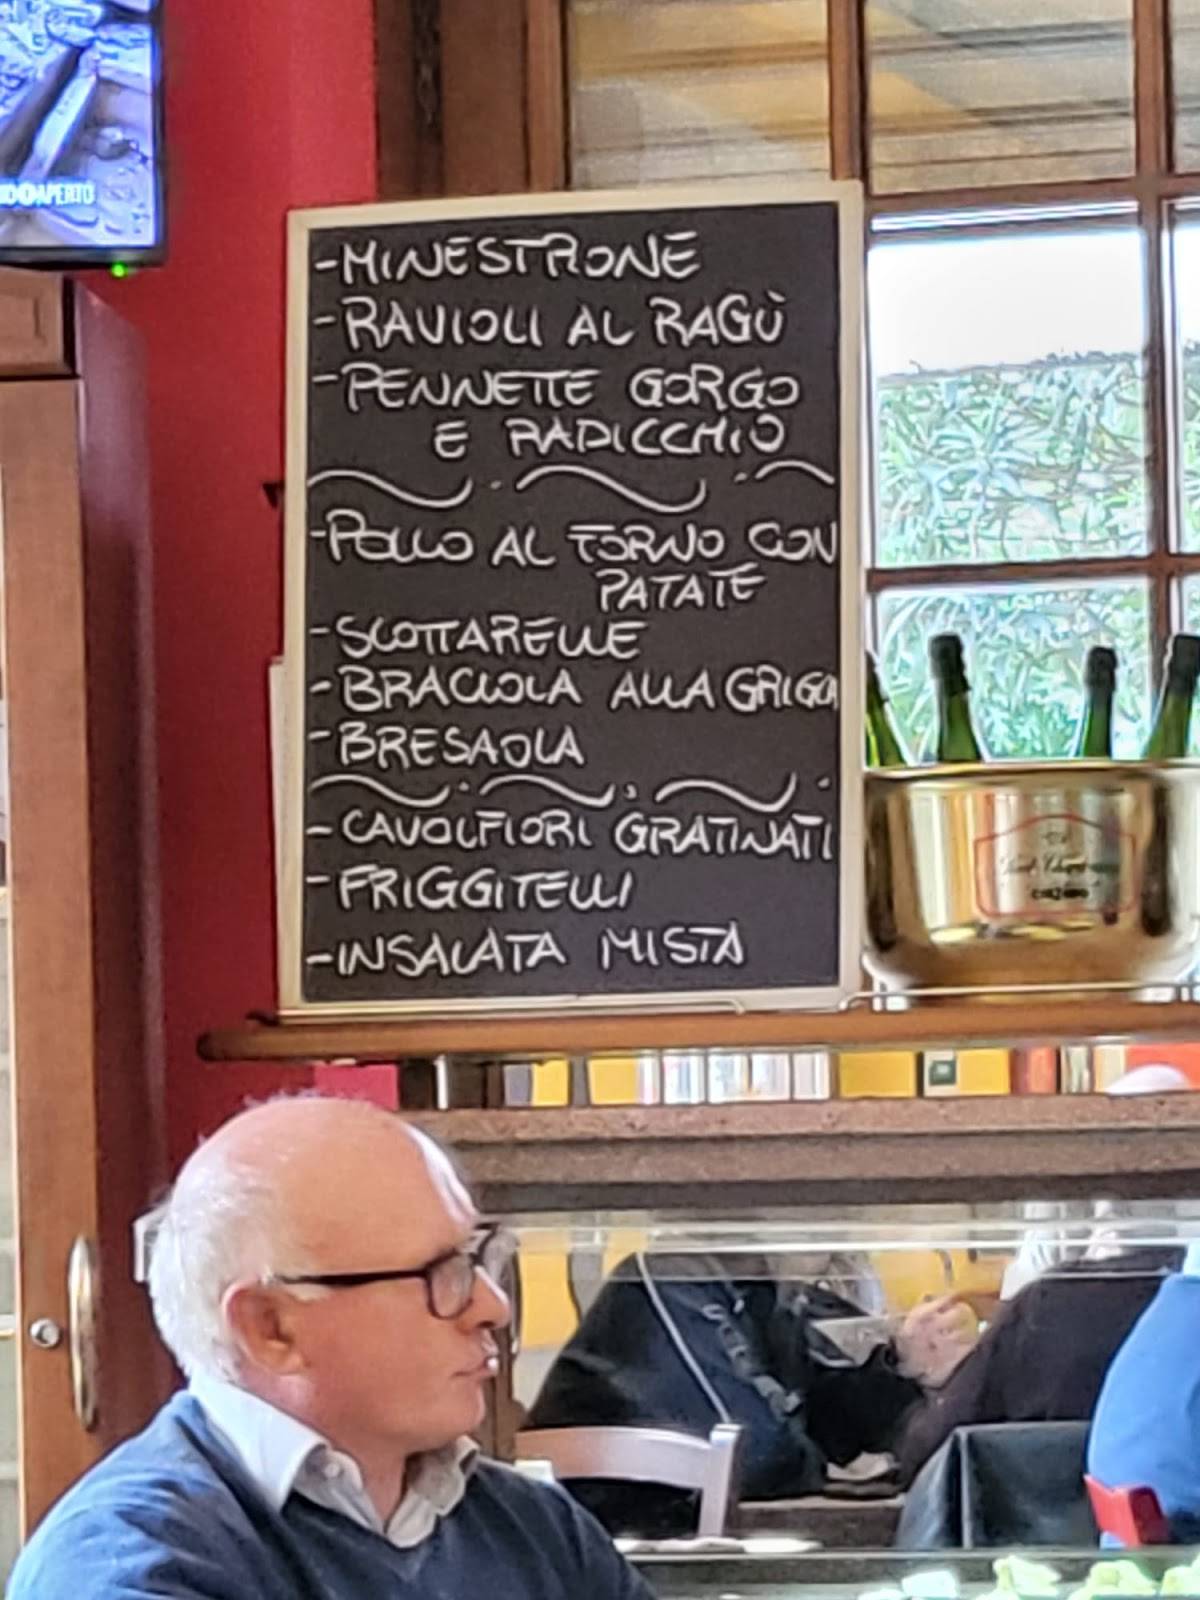 OAPERTO
-MINESTRONE
-RAVIOLI AL RAGÙ
-PENNETTE GORGO
E RADICCHIO
-POLLO AL FORNO CON
PATATE
-SCOTTARELLE
-BRACIOLA ALLA GRIGLIA
-BRESAOLA
-CAVOLFIORI GRATINATI
-FRIGGITELLI
-INSALATA MISTA